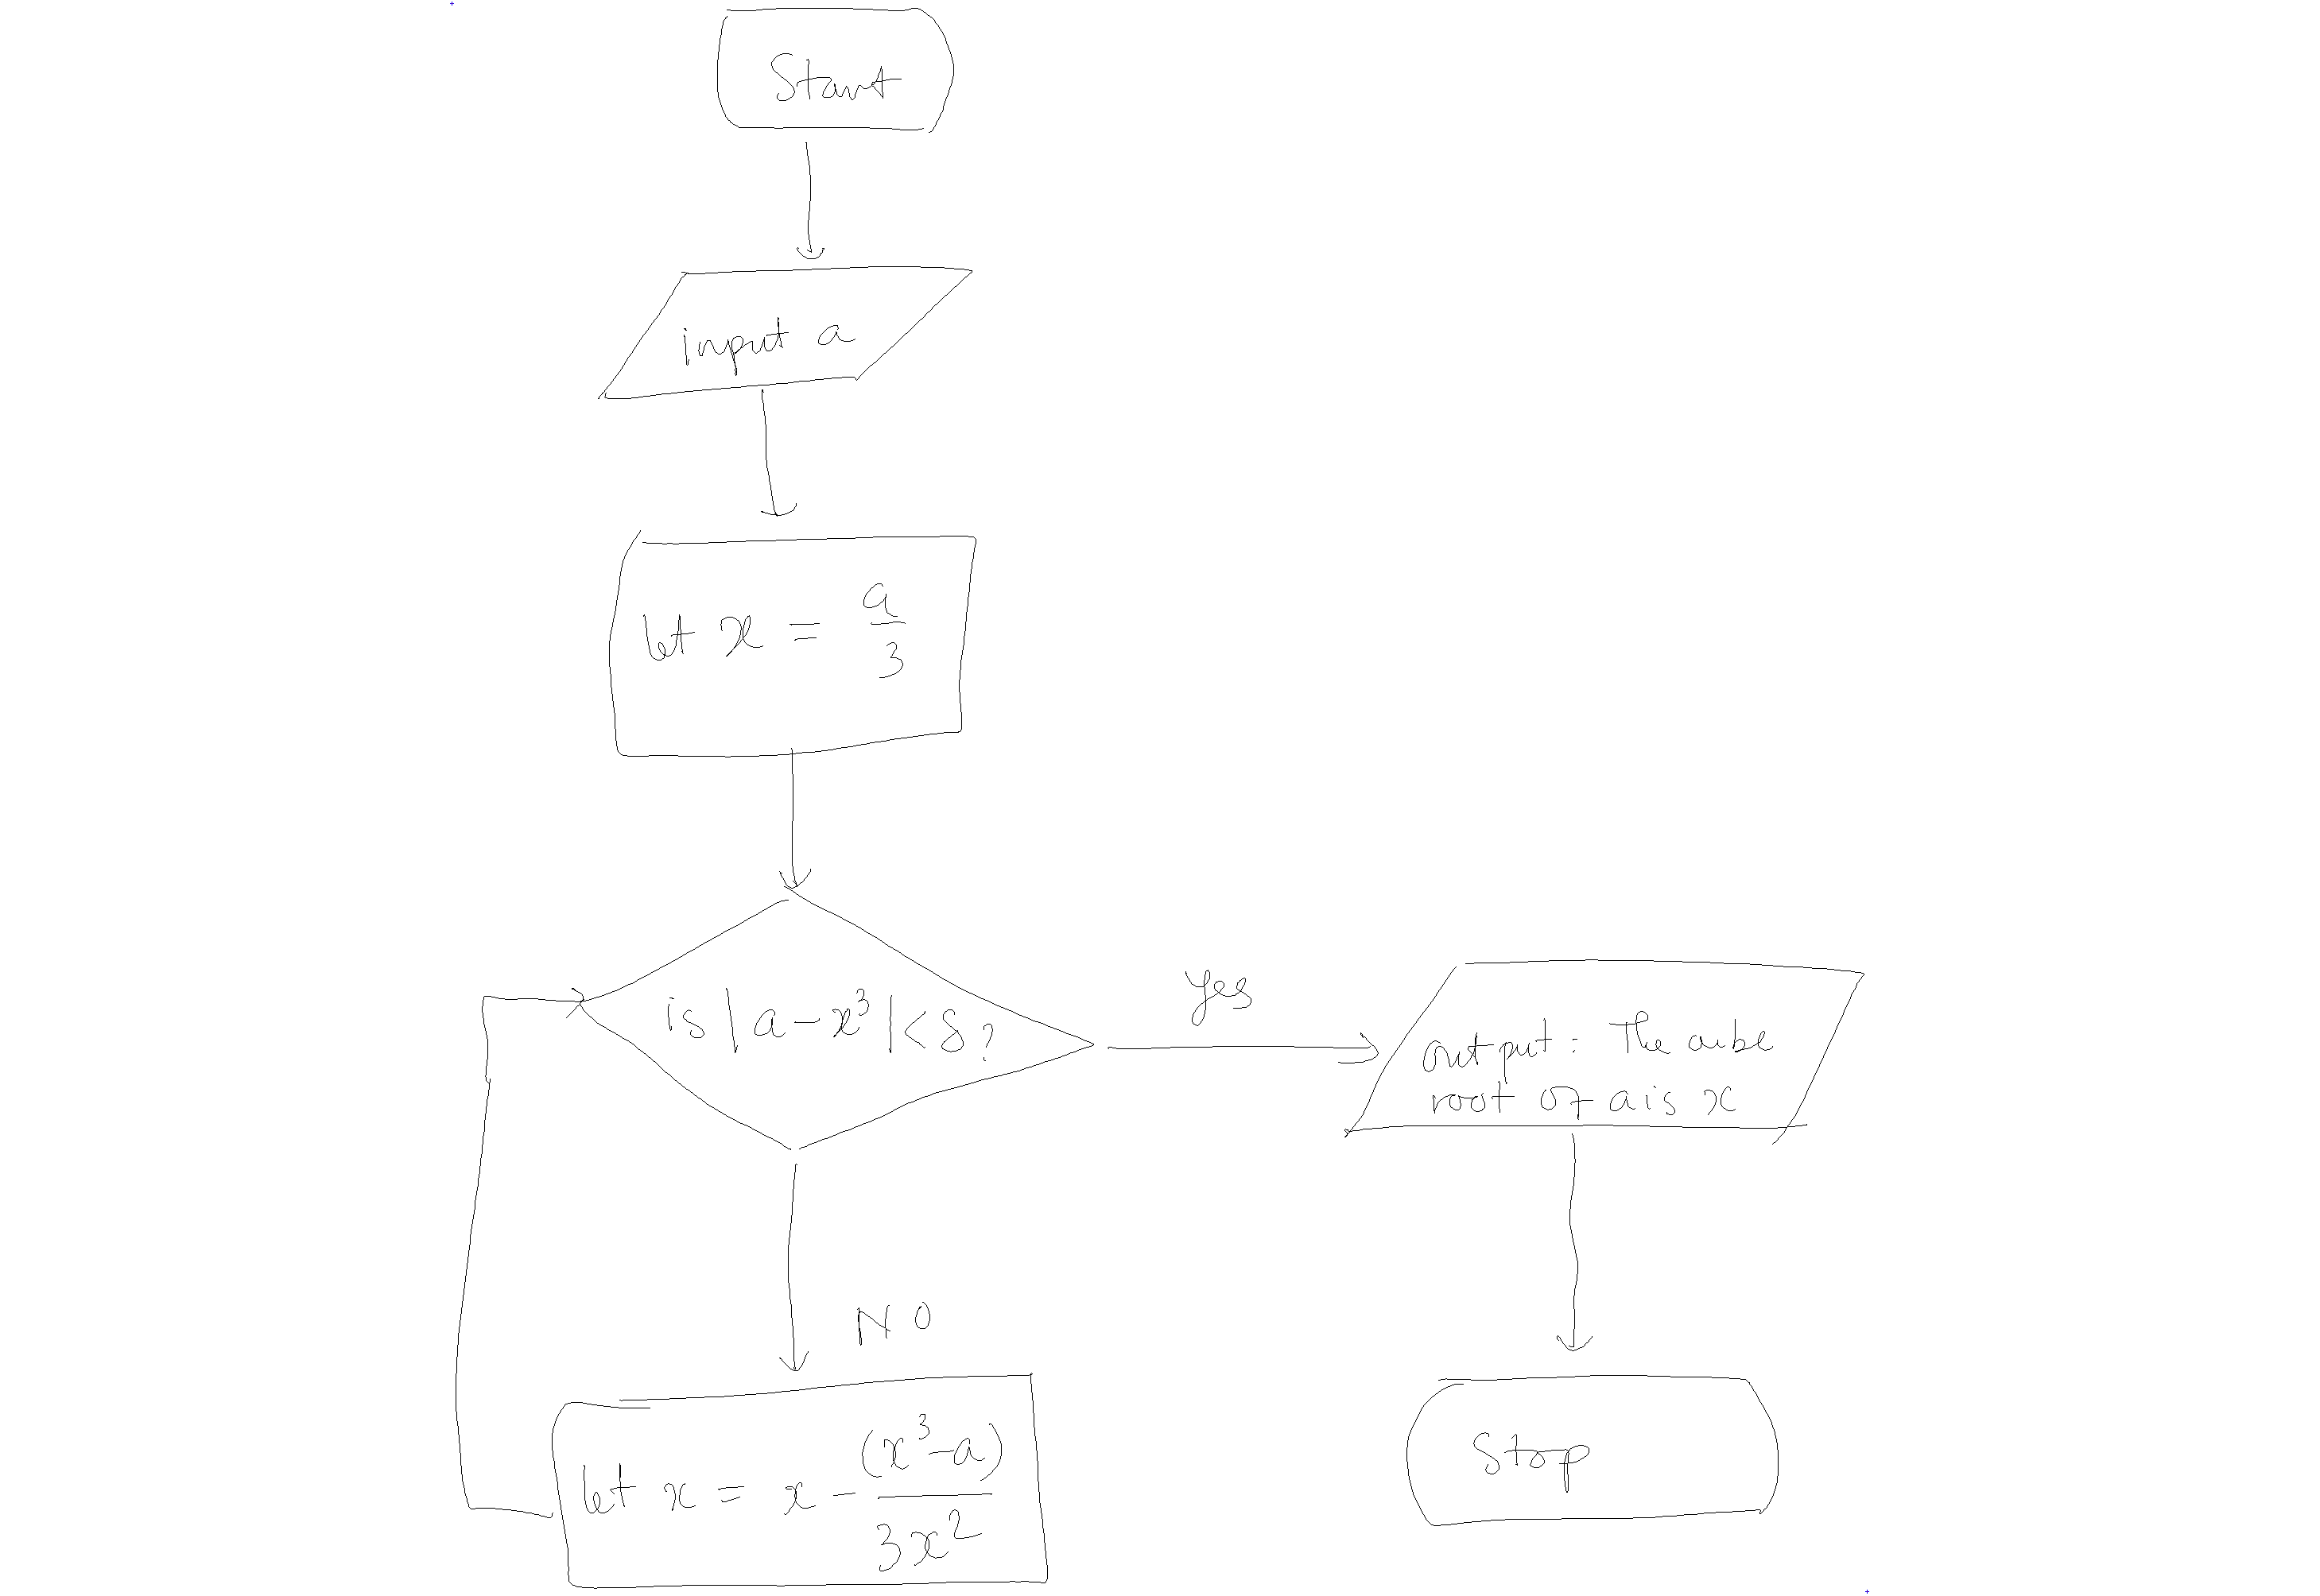 Start
input a
let x = a/3
is |a - x³| < δ?
Yes
output: The cube
root of a is x
NO
let x = x - (x³ - a)/3x²
Stop